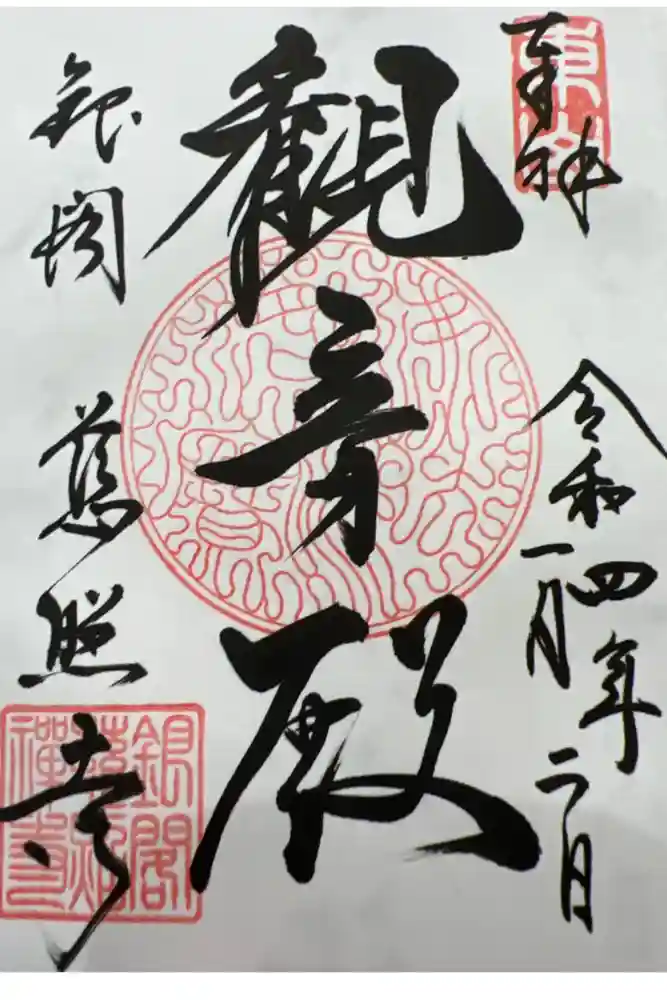 奉拝
東山
令和四年
一月二日
觀音殿
銀閣慈照寺
銀閣
慈照
禪寺